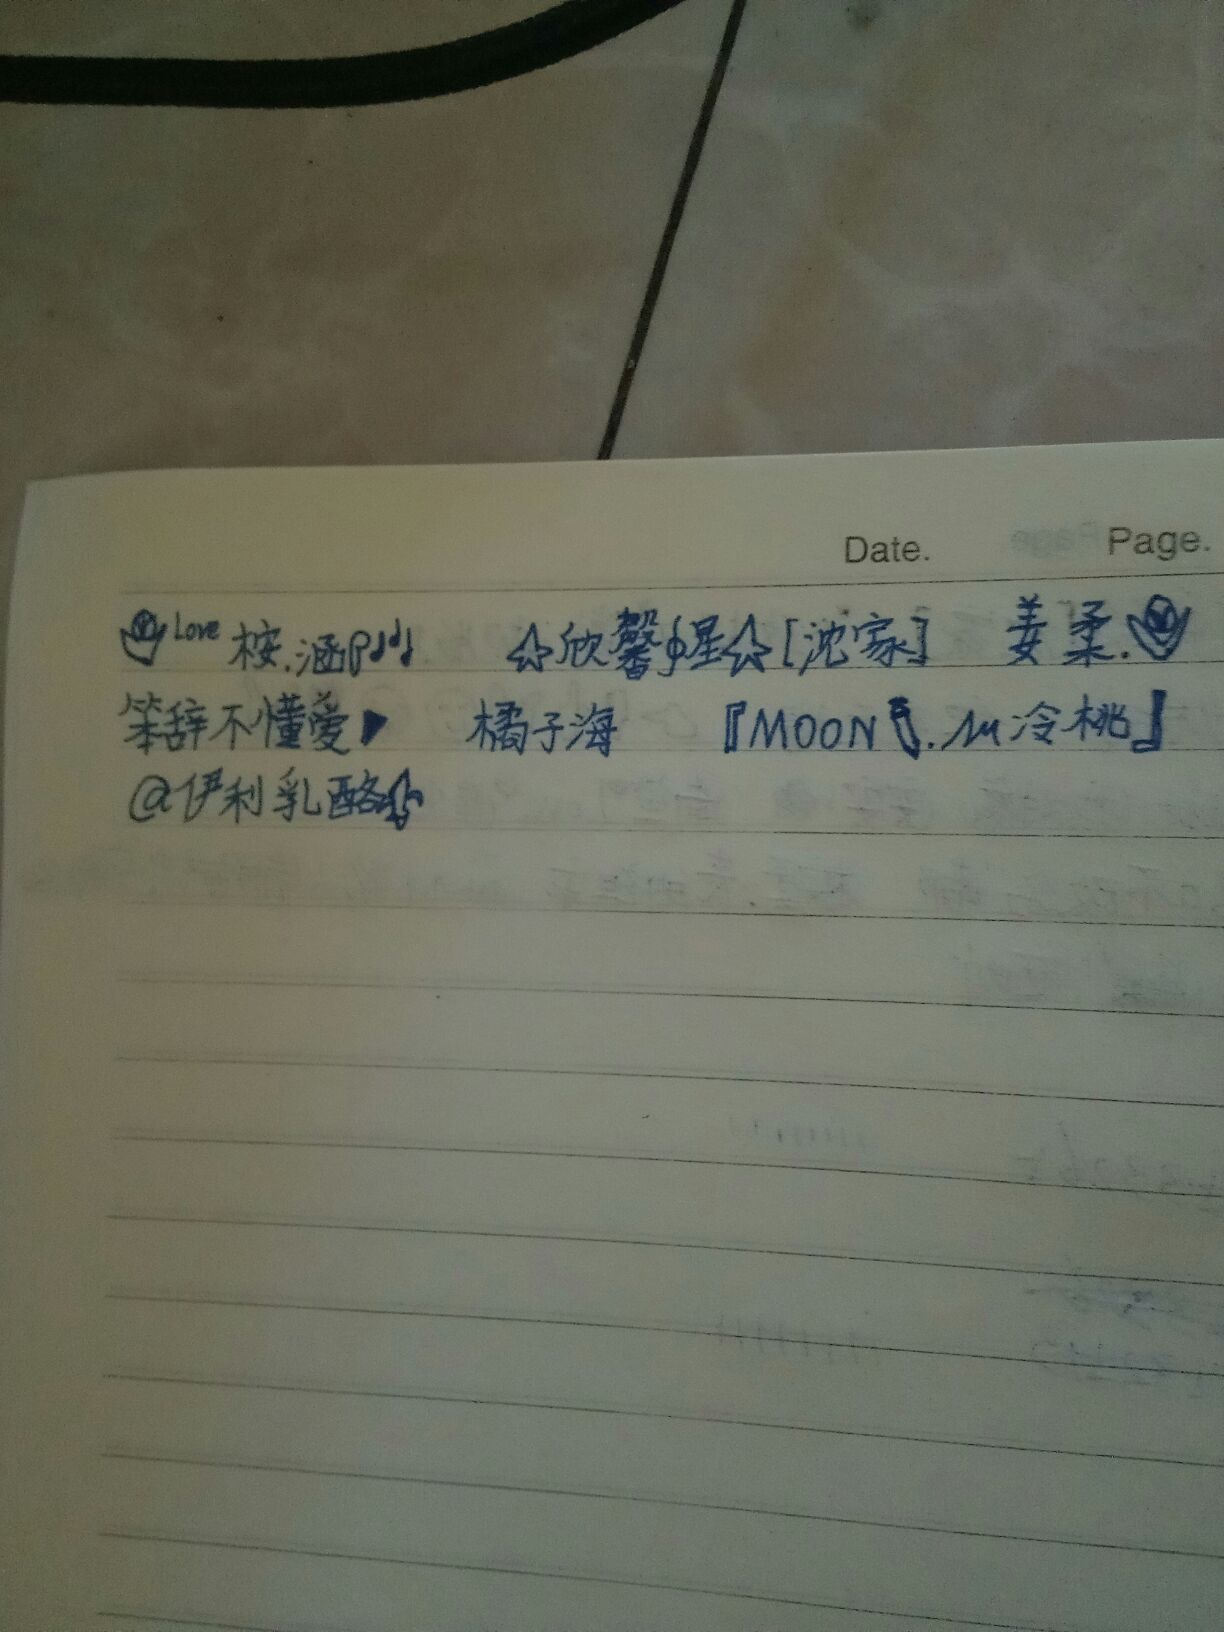 Date. Page.
Love 桉.涵 ☆欣馨∮星☆[沈家] 姜柔.
笨辞不懂爱 橘子海 『MOON.冷桃』
@伊利乳酪